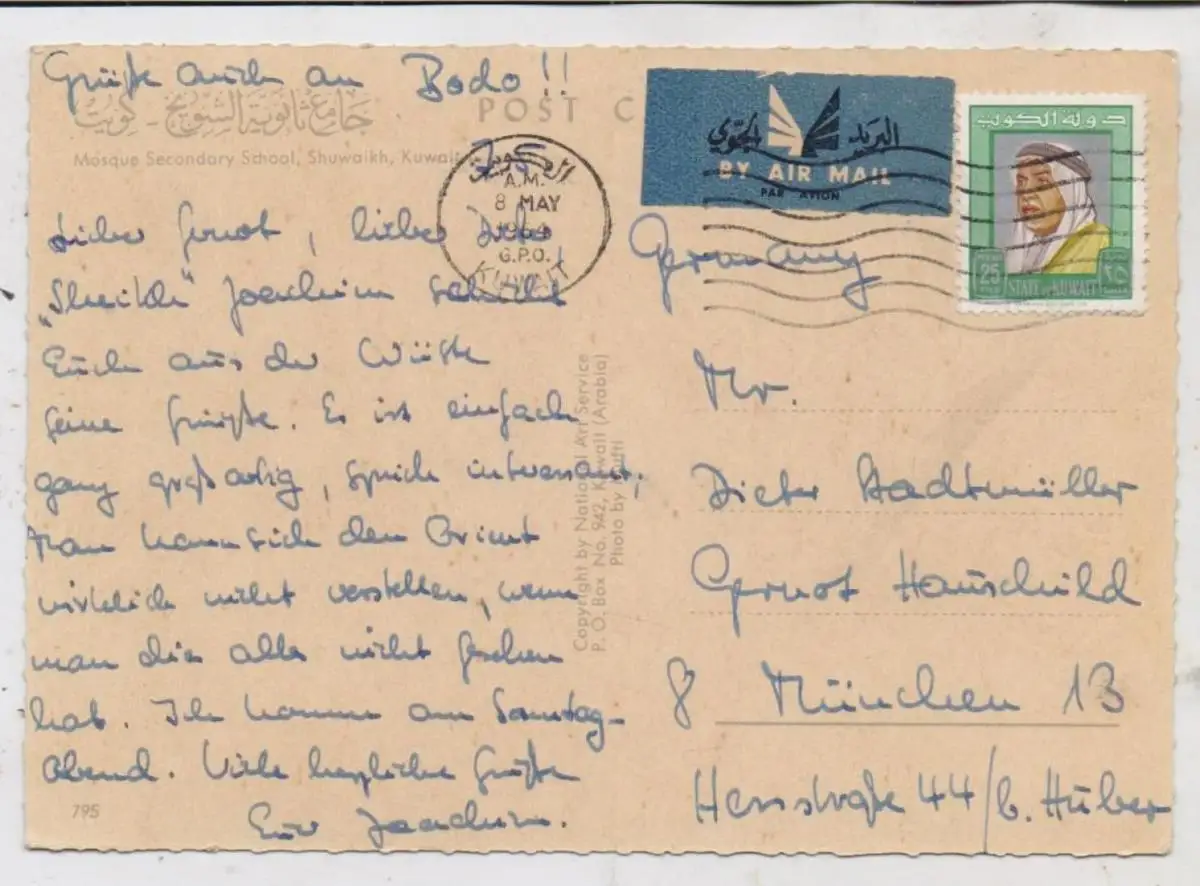 Grüße auch an Bodo!!
جامع ثانوية الشويخ - كويت
Mosque Secondary School, Shuwaikh, Kuwait
POST C
البريد الجوي
BY AIR MAIL
PAR AVION
دولة الكويت
25
٢٥
STATE OF KUWAIT
الكويت
A.M.
8 MAY
1964
G.P.O.
KUWAIT
Lieber Gernot, lieber Dieter
"Sheikh" Joachim schickt
Euch aus der Wüste
seine Grüße. Es ist einfach
ganz großartig, sprich interessant;
man kann sich den Orient
wirklich nicht vorstellen, wenn
man dies alles nicht gesehen
hat. Ich komme am Samstag-
abend. Viele herzliche Grüße
Euer Joachim.
795
Copyright by National Art Service
P. O. Box No. 942, Kuwait (Arabia)
Photo by
Germany
Mr.
Dieter Stadtmüller
Gernot Hauschild
8 München 13
Hessstraße 44/b. Huber